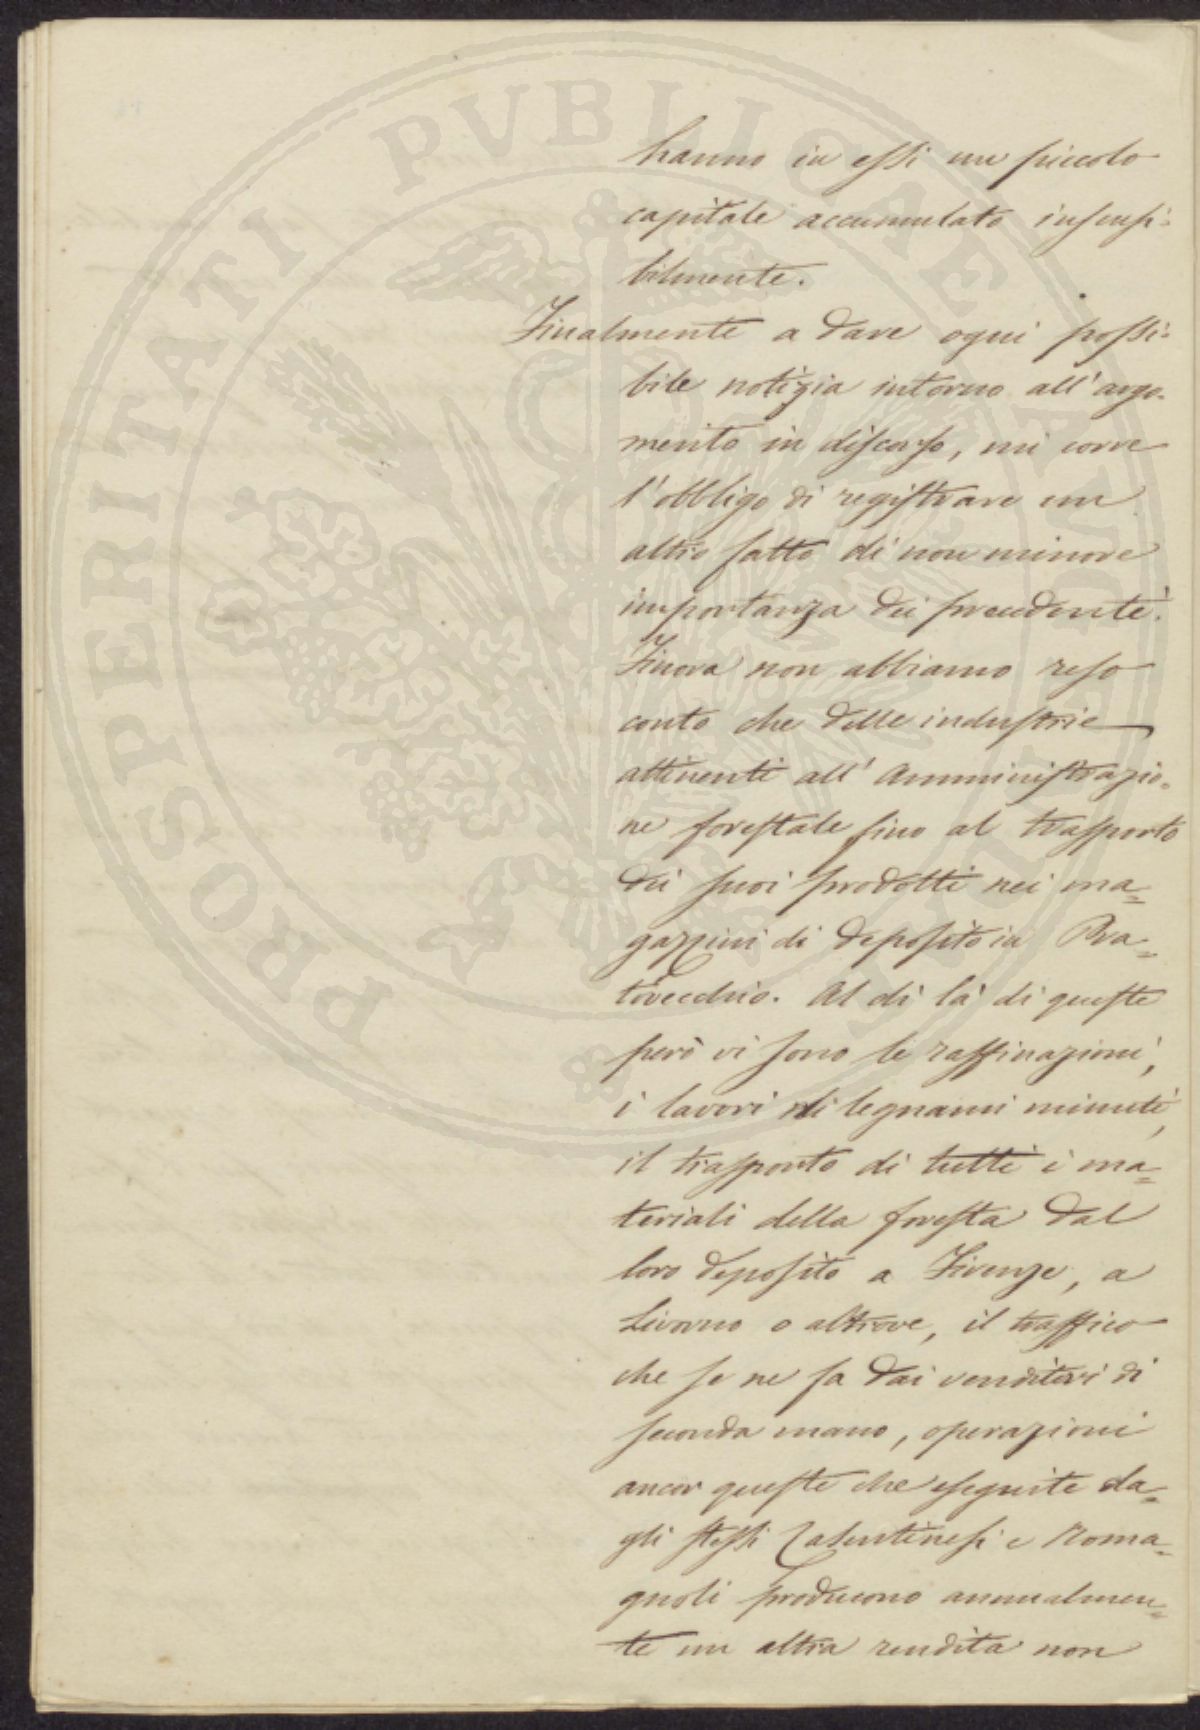 hanno in essi un piccolo
capitale accumulato insensi-
bilmente.
Finalmente a dare ogni possi-
bile notizia intorno all'argo-
mento in discorso, mi corre
l'obbligo di registrare un
altro fatto di non minore
importanza dei precedenti.
Finora non abbiamo reso
conto che delle industrie
attinenti all'Amministrazio-
ne forestale fino al trasporto
dei suoi prodotti nei ma=
gazzini di deposito in Pra=
tovecchio. Al di là di queste
però vi sono le raffinazioni,
i lavori di legnami minuti,
il trasporto di tutti i ma=
teriali della foresta dal
loro deposito a Firenze, a
Livorno o altrove, il traffico
che se ne fa dai venditori di
seconda mano, operazioni
ancor queste che eseguite da=
gli stessi Casentinesi e Roma=
gnoli producono annualmen=
te un altra rendita non
PROSPERITATI PVBLICAE AVGE